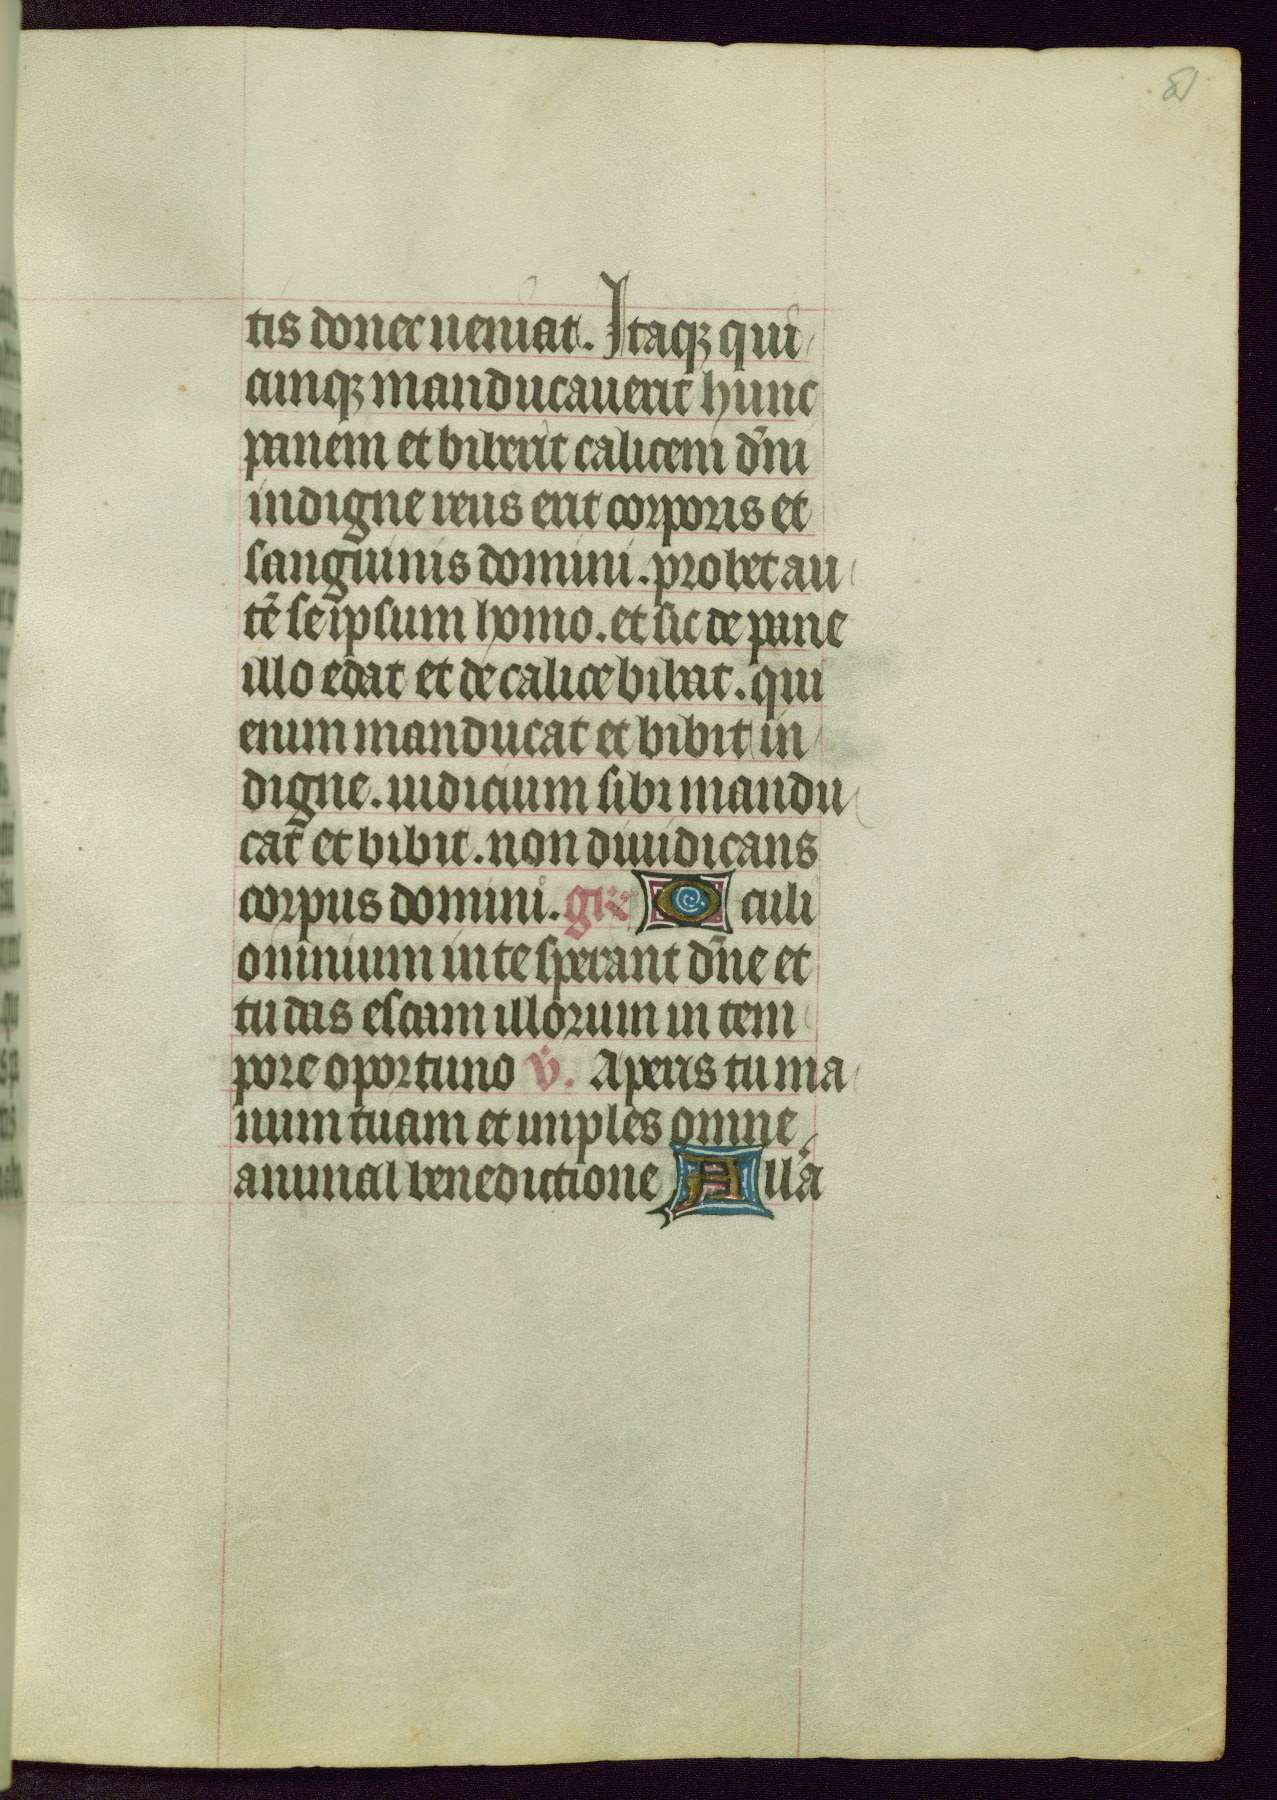 tis donec ueniat. Itaqꝫ qui
cunqꝫ manducauerit hunc
panem et biberit calicem dñi
indigne reus erit corporis et
sanguinis domini. probet au
tē seipsum homo. et sic de pane
illo edat et de calice bibat. qui
enim manducat et bibit in
digne. iudicium sibi mandu
cat et bibit. non diiudicans
corpus domini. gͬ Oculi
omnium in te sperant dñe et
tu das escam illorum in tem
pore oportuno v̈. Aperis tu ma
num tuam et imples omne
animal benedictione Alla